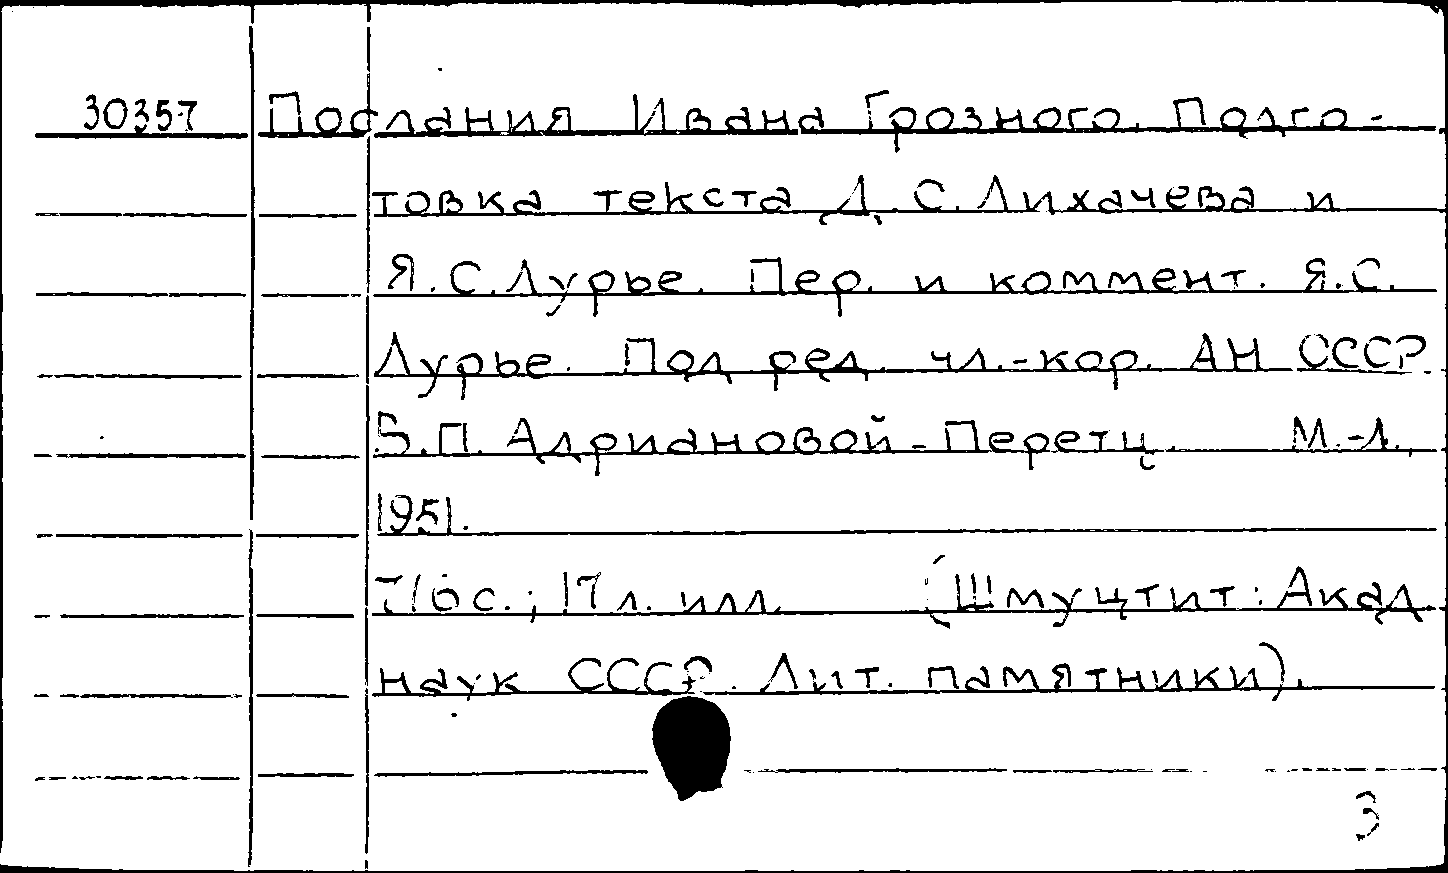 30357 Послания Ивана Грозного. Подго-
товка текста Д.С.Лихачева и
Я.С.Лурье. Пер. и коммент. Я.С.
Лурье. Под ред. чл.-кор. АН СССР
В.П. Адриановой-Перетц. М.-Л.,
1951.
716с.; 17 л. илл. (Шмуцтит: Акад.
наук СССР. Лит. памятники).
3